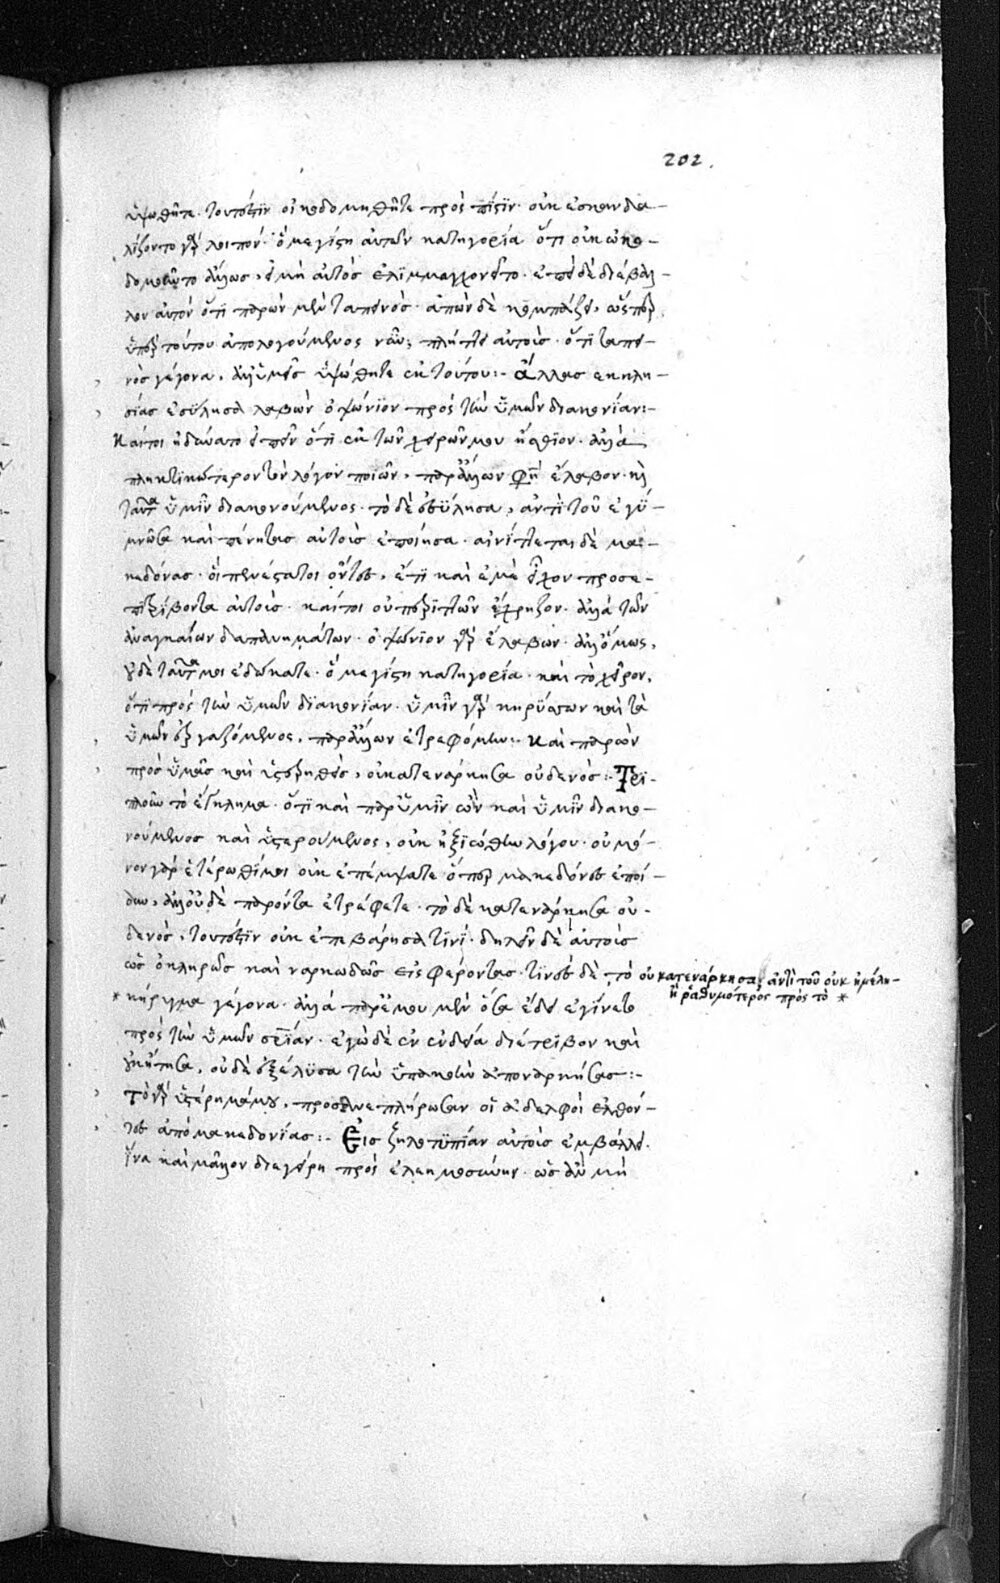 202.
ὑψωθῆτε. τουτέστϊν οἰκοδομηθῆτε πρὸς πίστϊν. οὐκ ἐσκανδα-
λίζοντο γὰρ λοιπόν. ὃ μεγίστη αὐτῶν κατηγορία ὅτι οὐκ ὠκο-
δομοῦντο ἄλλως, εἰ μὴ αὐτὸς ἐλϊμμαγχονεῖτο. ἐπεὶ δὲ διέβαλ-
λον αὐτὸν ὅτϊ παρὼν μὲν ταπεινὸς. ἀπὼν δὲ κομπάζει, ὥσπερ
ὑπὲρ τούτου ἀπολογούμενος νῦν, πλήττει αὐτούς. ὅτϊ ταπει-
νὸς γέγονα, ἀλλ' ὑμεῖς ὑψώθητε ἐκ τούτου:- Ἄλλας ἐκκλη-
σίας ἐσύλησα λαβὼν ὀψώνϊον πρὸς τὴν ὑμῶν διακονίαν:-
Καίτοι ἠδύνατο εἰπεῖν ὅτϊ ἐκ τῶν χειρῶν μου ἤσθϊον. ἀλλὰ
πληκτϊκώτερον τὸν λόγον ποϊῶν, παρ' ἄλλων φησὶν ἔλαβον. καὶ
ταῦτα ὑμῖν διακονούμενος. τὸ δὲ ἐσύλησα, ἀντὶ τοῦ ἐγύ-
μνωσα καὶ πένητας αὐτοὺς ἐποίησα. αἰνίττεται δὲ μα-
κεδόνας. οἱ πενέστατοι ὄντες, ἔτϊ καὶ ἐμὲ εἶχον προσε-
πϊτρίβοντα αὐτούς. καίτοι οὐ περϊττῶν ἔχρηζον. ἀλλὰ τῶν
ἀναγκαίων δαπανημάτων. ὀψώνϊον γὰρ ἔλαβον. ἀλλ' ὅμως,
οὐδὲ ταῦτα μοι ἐδώκατε. ὃ μεγίστη κατηγορία. καὶ τὸ χεῖρον,
ὅτϊ πρὸς τὴν ὑμῶν δϊακονίαν. ὑμῖν γὰρ κηρύσσων καὶ τὰ
ὑμῶν ἐργαζόμενος, παρ' ἄλλων ἐτρεφόμην:- Καὶ παρὼν
πρὸς ὑμᾶς καὶ ὑστερηθεὶς, οὐ κατενάρκησα οὐδενός:- Τρϊ-
πλοῦν τὸ ἔγκλημα. ὅτϊ καὶ παρ' ὑμῖν ὢν καὶ ὑμῖν διακο-
νούμενος καὶ ὑστερούμενος, οὐκ ἠξϊώθην λόγου. οὐ μό-
νον γὰρ ἑτέρωθί μοι οὐκ ἐπέμψατε ὅπερ μακεδόνες ἐποί-
ουν, ἀλλ' οὐδὲ παρόντα ἐτρέφετε. τὸ δὲ κατενάρκησα οὐ-
δενὸς, τουτέστϊν οὐκ ἐπεβάρησά τινϊ. δηλοῖ δὲ αὐτοὺς
ὡς ὀκληρῶς καὶ ναρκωδῶς εἰσφέροντας. τϊνὲς δὲ τὸ οὐ κατενάρκησα, ἀντὶ τοῦ οὐκ ἠμέλη-
ἢ ῥαθυμότερος πρὸς τὸ *
* κήρυγμα γέγονα. ἀλλὰ παρ' ἐμου μὲν ὅσα ἔδει ἐγίνετο
πρὸς τὴν ὑμῶν σωτηρίαν. ἐγὼ δὲ ἐν ἐνδείᾳ διέτρϊβον καὶ
οὐκ ᾔτησα, οὐδὲ ἐξέλϋσα τὴν ὑπακοὴν ἀποναρκήσας:-
Τὸ γὰρ ὑστέρημά μου, προσανεπλήρωσαν οἱ ἀδελφοὶ ἐλθόν-
τες ἀπὸ μακεδονίας:- Εἰς ζηλοτϋπίαν αὐτοὺς ἐμβάλλει.
ἵνα καὶ μᾶλλον διεγείρῃ πρὸς ἐλεημοσύνην. ὡς ἂν μὴ